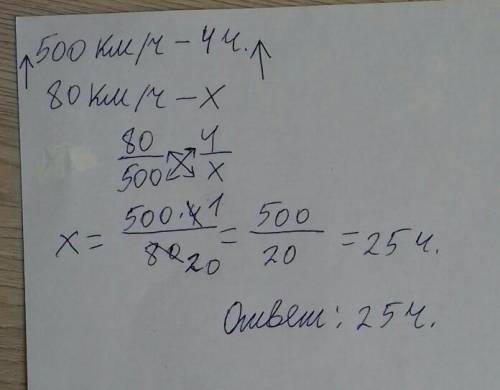 500 км/ч – 4ч.
80 км/ч – х
80/500 4/х
х = 500·4 1/80 20 = 500/20 = 25ч.
Ответ: 25ч.